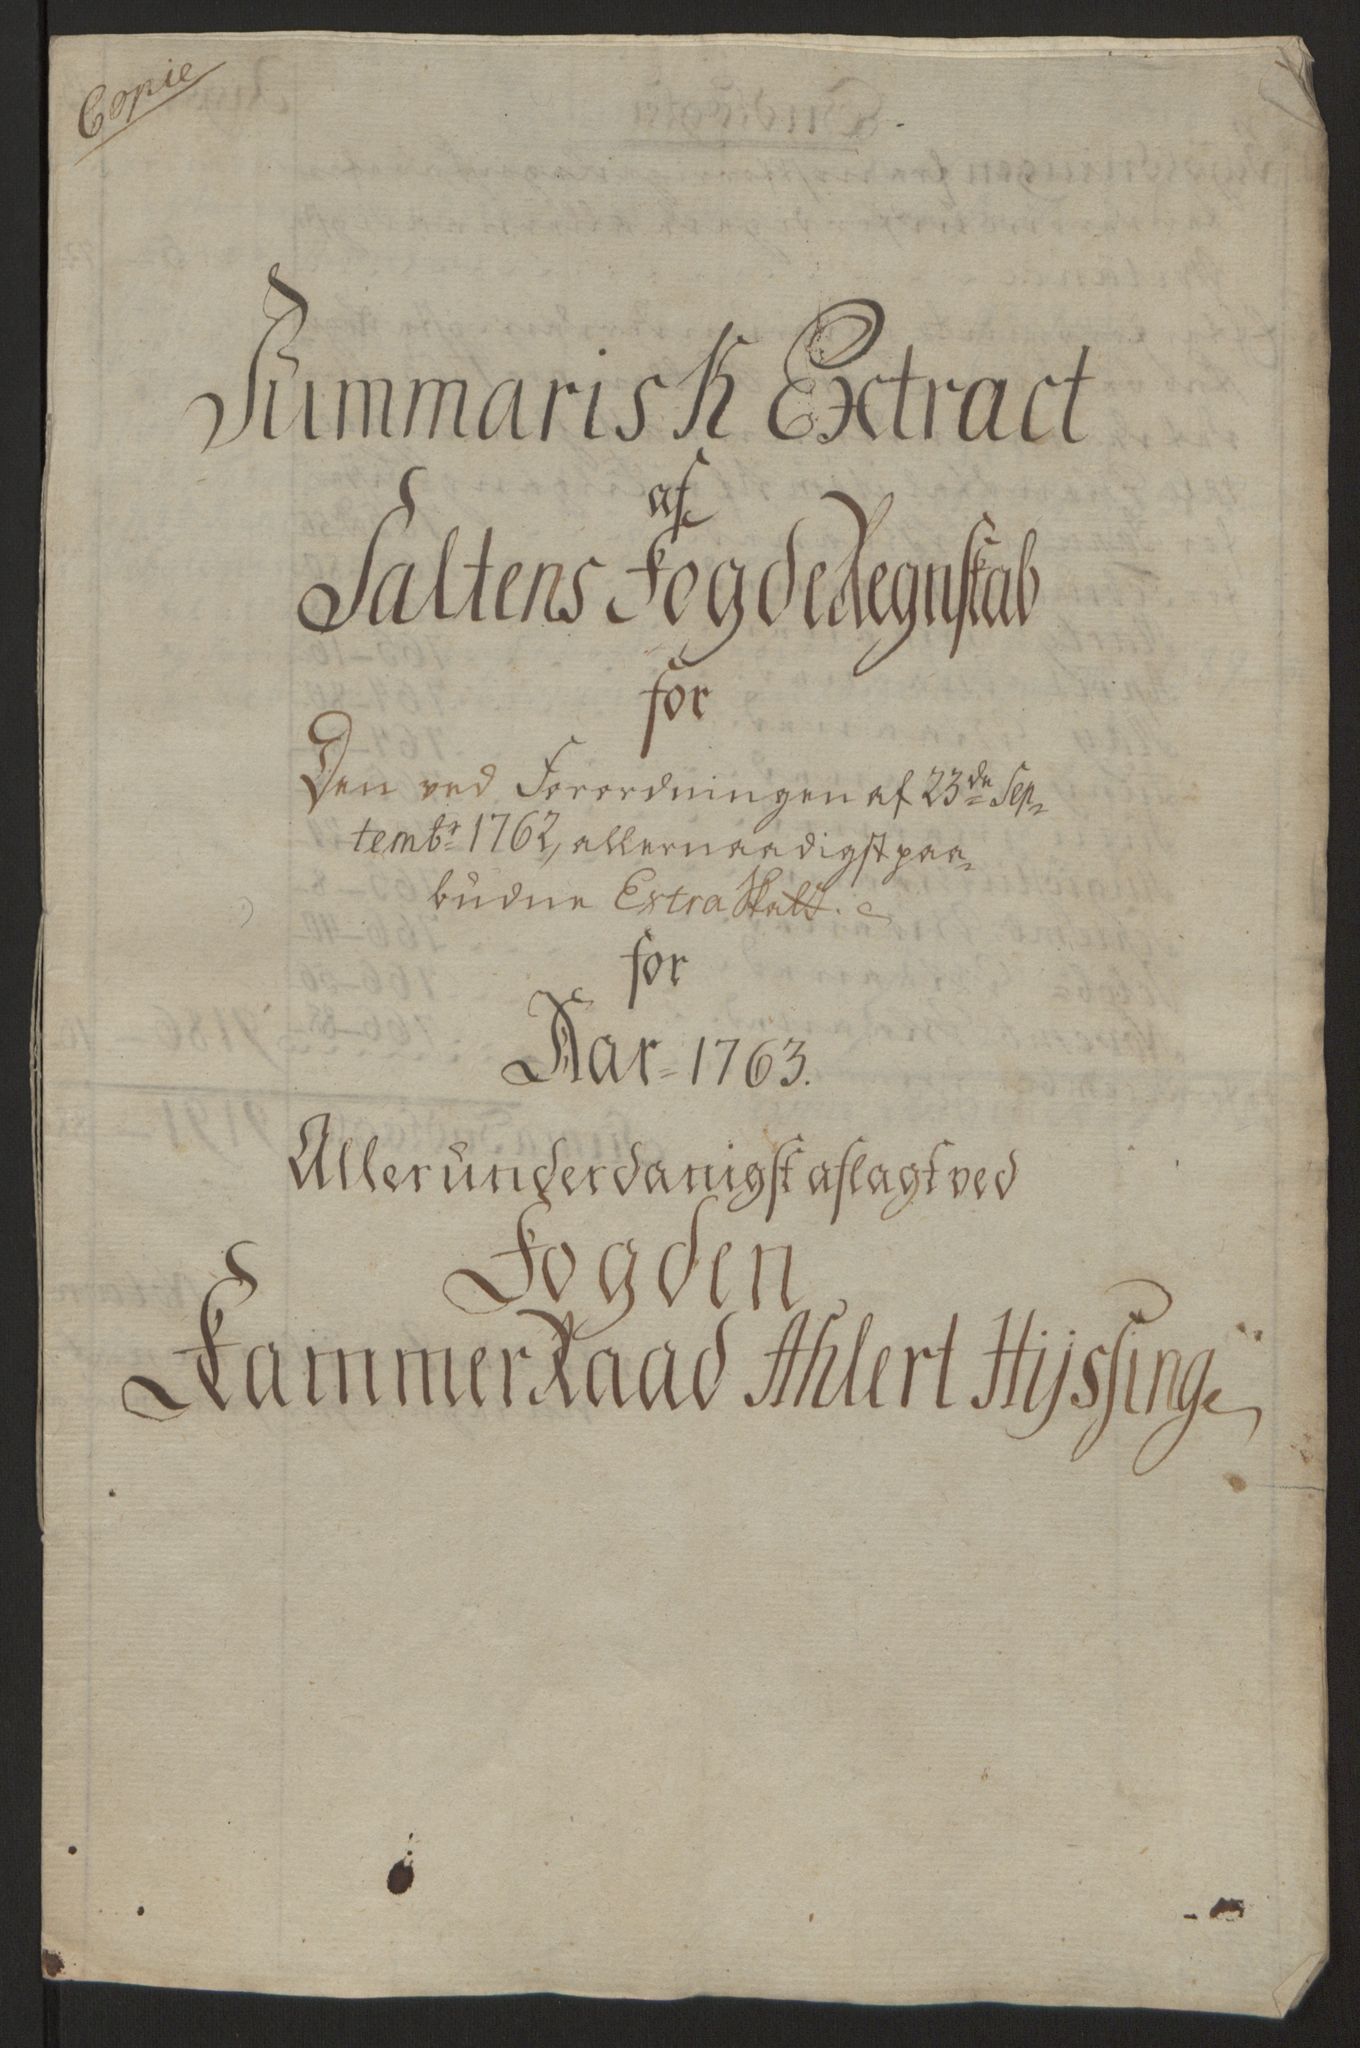 Copie
Summarisk Extract
af
Saltens FogdeRegnskab
for
Den ved Forordningen af 23de Sep-
tembr 1762, allernaadigst paa-
budne Extra Skatt.
for
Aar 1763.
Allerunderdanigst aflagt ved
Fogden
KammerRaad Ahlert Hijssing